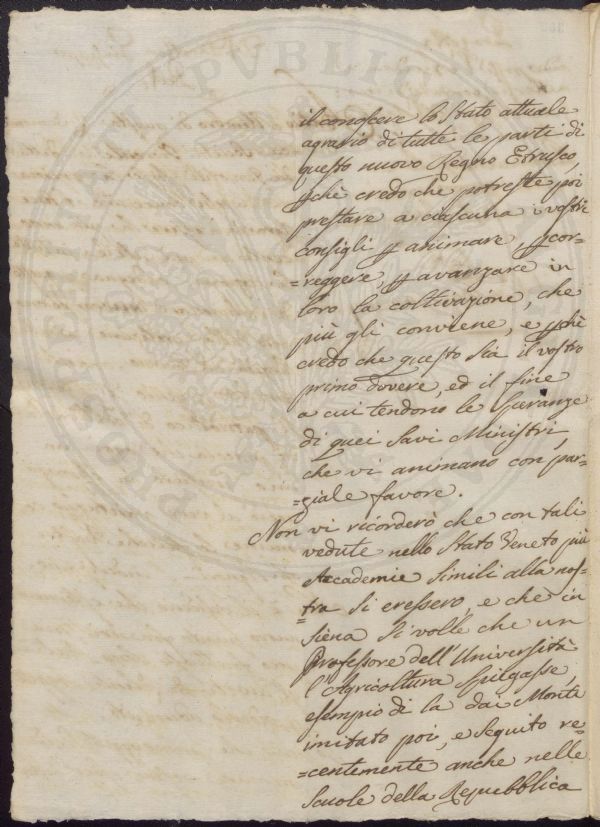 il conoscere lo Stato attuale
agrario di tutte le parti di
questo nuovo Regno Etrusco,
pchè credo che potreste poi
prestare a ciascuna i vostri
consigli p animare, p cor=
=reggere, p avanzare in
loro la coltivazione, che
più gli conviene, e pchè
credo che questo sia il vostro
primo dovere, ed il fine
a cui tendono le Speranze
di quei Savi Ministri,
che vi animano con par=
=ziale favore.
Non vi ricorderò che con tali
vedute nello Stato Veneto più
Accademie simili alla nos=
=tra si eressero, e che in
Siena si volle che un
Professore dell'Università
l'Agricoltura spiegasse,
esempio di la dai Monti
imitato poi, e seguito re=
=centemente anche nelle
Scuole della Repubblica
PVBLICA
PROSPERITATI